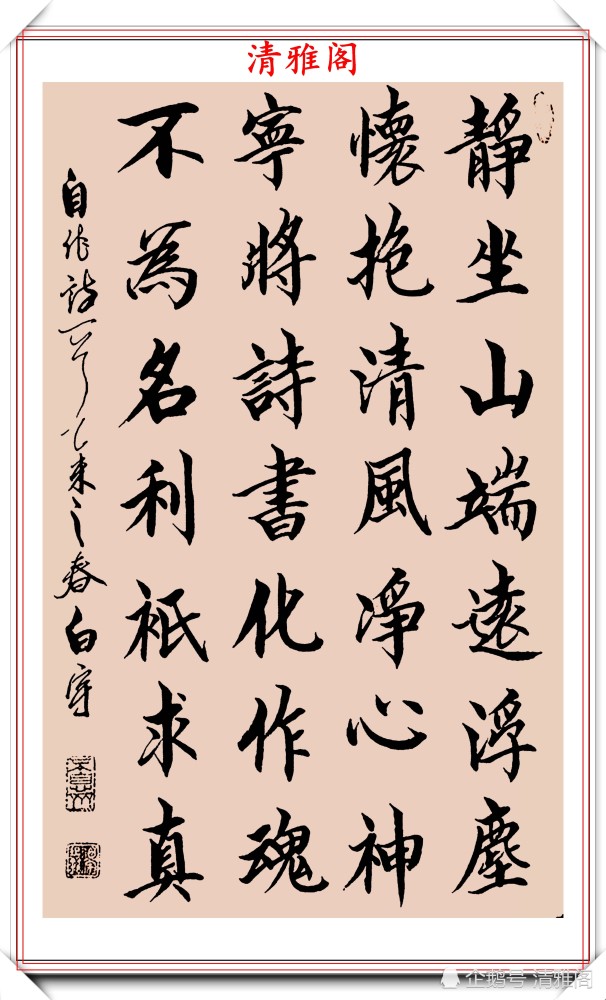 清雅阁
靜坐山端遠浮塵
懷抱清風凈心神
寧將詩書化作魂
不為名利祇求真
自作詩一首乙未之春白宇
企鹅号 清雅阁